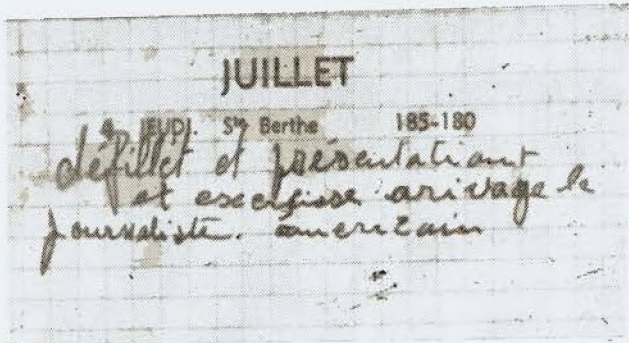 JUILLET
4 JEUDI. Ste Berthe 185-180
défillet et présentationt
et excersisse arivage le
journaliste. américain